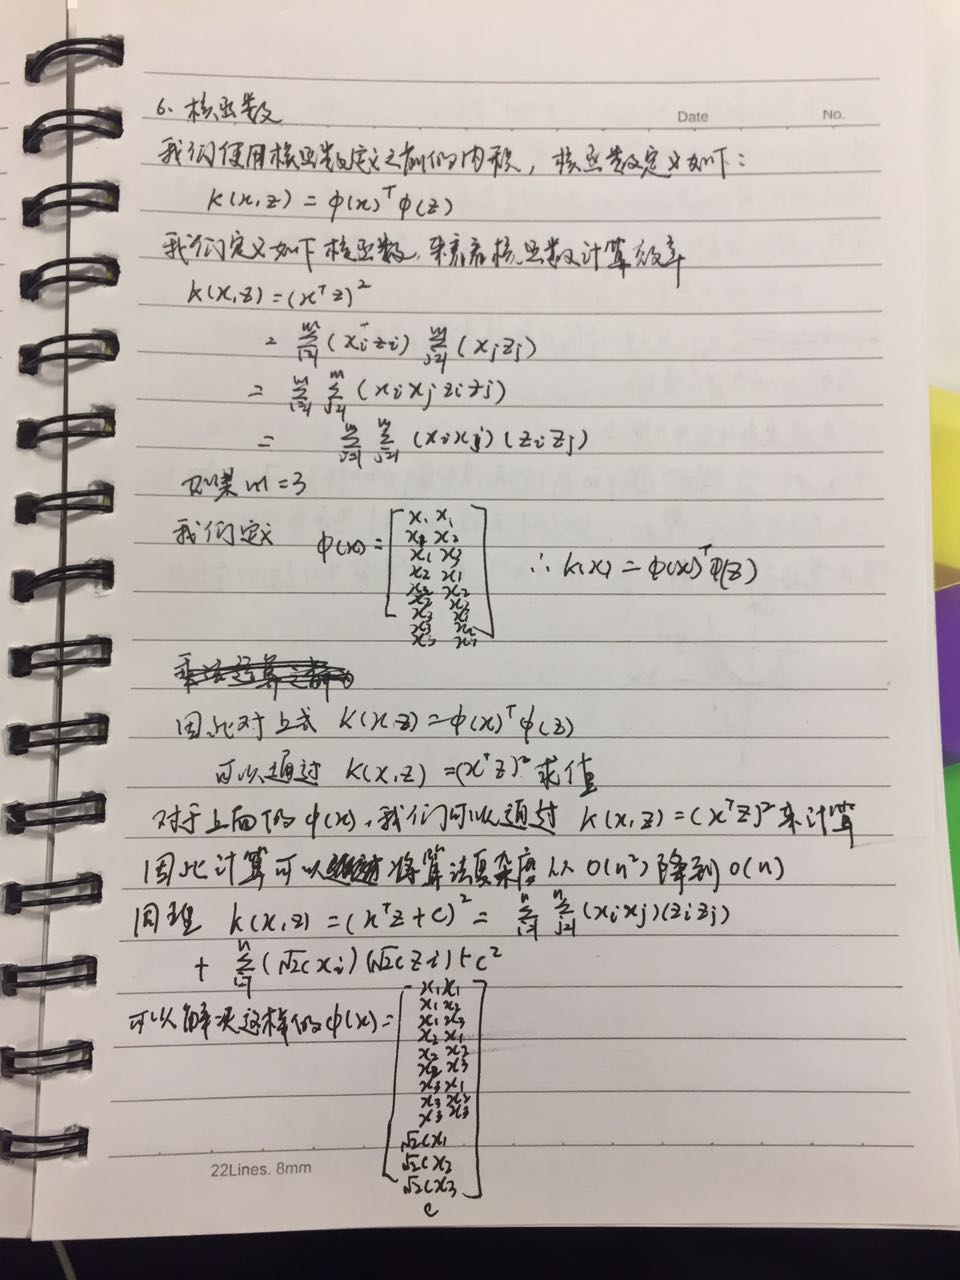 Date No.
6. 核函数
我们使用核函数定义之前的内积，核函数定义如下：
K(x,z) = φ(x)ᵀφ(z)
我们定义如下核函数,来看看核函数计算效率
K(x,z)=(xᵀz)²
= Σᵢ₌₁ᵐ(xᵢᵀzᵢ) Σⱼ₌₁ᵐ(xⱼzⱼ)
= Σᵢ₌₁ᵐ Σⱼ₌₁ᵐ(xᵢxⱼzᵢzⱼ)
= Σᵢ₌₁ᵐ Σⱼ₌₁ᵐ(xᵢxⱼ)(zᵢzⱼ)
如果m=3
我们定义 φ(x)= ∴ K(x) = φ(x)ᵀφ(z)
x₁x₁
x₁x₂
x₁x₃
x₂x₁
x₂x₂
x₂x₃
x₃x₁
x₃x₂
x₃x₃
因此对上式 K(x,z)=φ(x)ᵀφ(z)
可以通过 K(x,z)=(xᵀz)²求值
对于上面的φ(x),我们可以通过 K(x,z)=(xᵀz)²来计算
因此计算可以将算法复杂度从O(n²)降到O(n)
同理 K(x,z)=(xᵀz+c)²= Σᵢ₌₁ⁿ Σⱼ₌₁ⁿ(xᵢxⱼ)(zᵢzⱼ)
+ Σᵢ₌₁ⁿ(√2c xᵢ)(√2c zᵢ)+c²
可以解决这样的φ(x)=
x₁x₁
x₁x₂
x₁x₃
x₂x₁
x₂x₂
x₂x₃
x₃x₁
x₃x₂
x₃x₃
√2cx₁
√2cx₂
√2cx₃
c
22Lines. 8mm